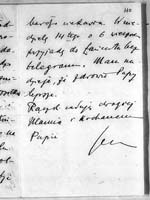 110
bardzo ciekawa. W nie-
dzielę 14 tego o 6 wieczór
przyjadę do Łańcuta
telegram. Mam na-
dzieję, że zdrowie Papy
lepsze.
Rączki całuję drogiej
Mamie i kochanemu
Papie